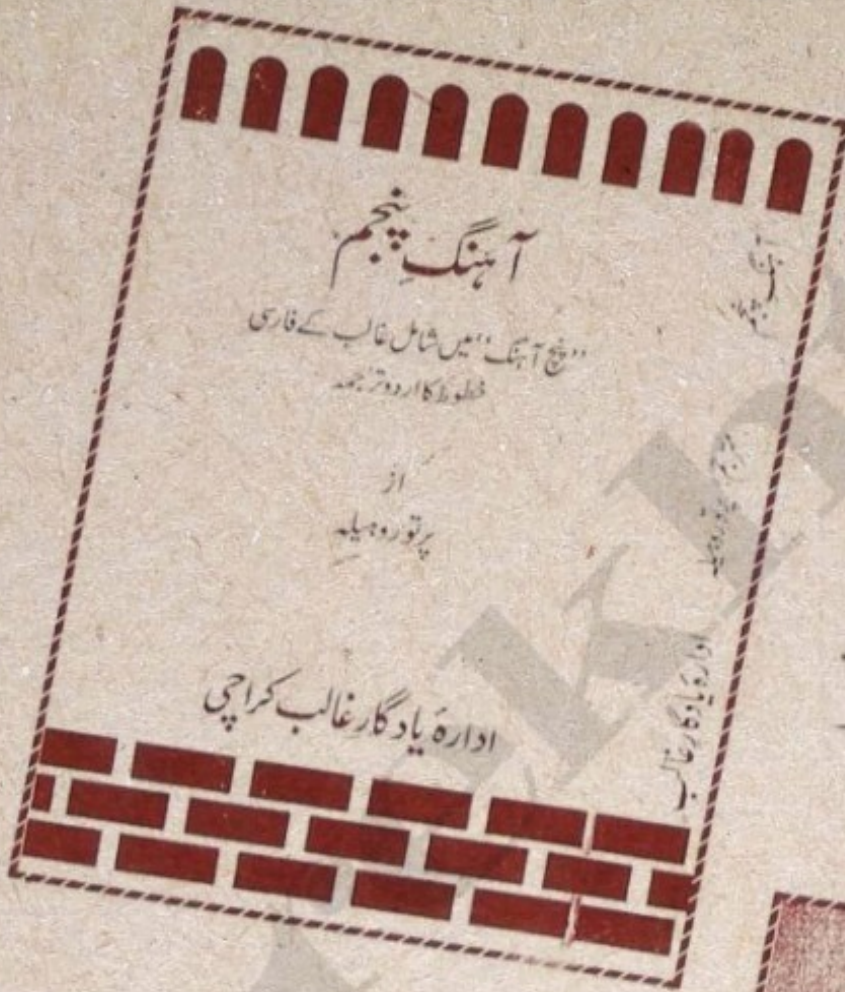 آہنگِ پنجم
”پنج آہنگ“ میں شامل غالب کے فارسی
خطوط کا اردو ترجمہ
از
پرتو روہیلہ
ادارۂ یادگارِ غالب کراچی
آہنگِ پنجم
مترجم پرتو روہیلہ
ادارۂ یادگارِ غالب